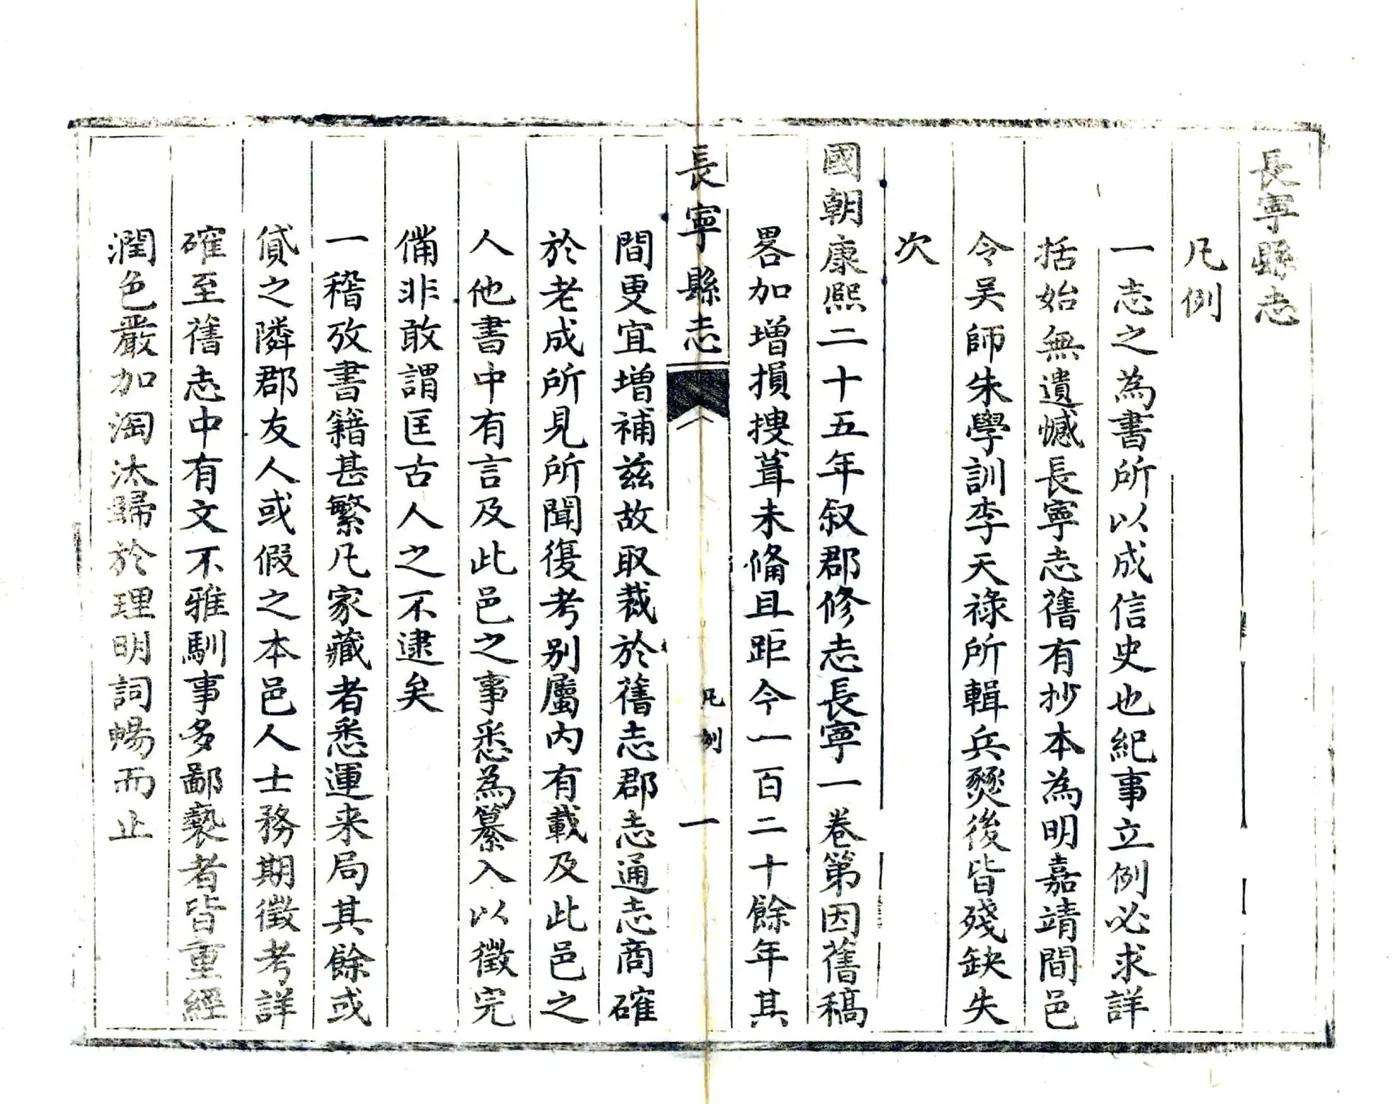 長寧縣志
凡例
一志之為書所以成信史也紀事立例必求詳
括始無遺憾長寧志舊有抄本為明嘉靖間邑
令吴師朱學訓李天祿所輯兵燹後皆殘缺失
次
國朝康熙二十五年叙郡修志長寧一卷第因舊稿
畧加增損搜葺未俻且距今一百二十餘年其
長寧縣志
凡例
一
間更宜增補茲故取裁於舊志郡志通志商確
於老成所見所聞復考别屬内有載及此邑之
人他書中有言及此邑之事悉為纂入以徵完
俻非敢謂匡古人之不逮矣
一稽攷書籍甚繁凡家藏者悉運来局其餘或
貸之隣郡友人或假之本邑人士務期徵考詳
確至舊志中有文不雅馴事多鄙褻者皆重經
潤色嚴加淘汰歸於理明詞暢而止